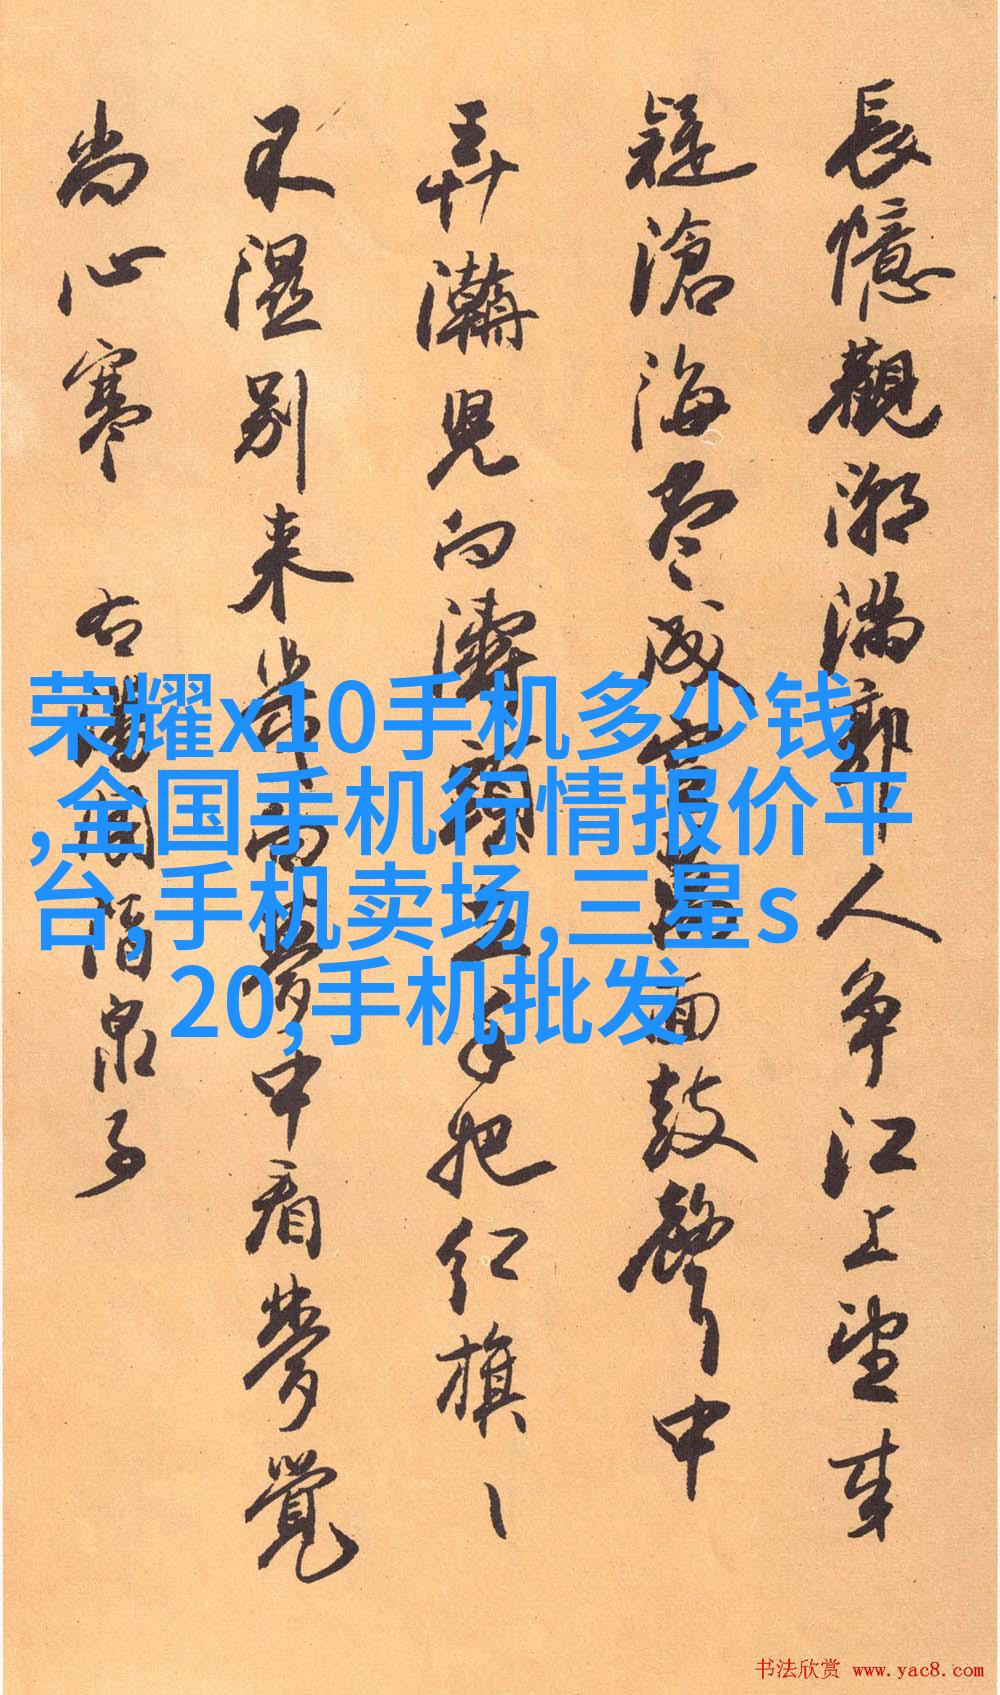 長憶觀潮滿郭人爭江上望来
疑滄海盡成空萬面鼓聲中
弄潮兒向濤頭立手把紅旗ヽ
不濕別来幾向夢中看夢覺
尚心寒 右潘閬酒泉子
荣耀x10手机多少钱
,全国手机行情报价平
台,手机卖场,三星s
20,手机批发
书法欣赏 www.yac8.com